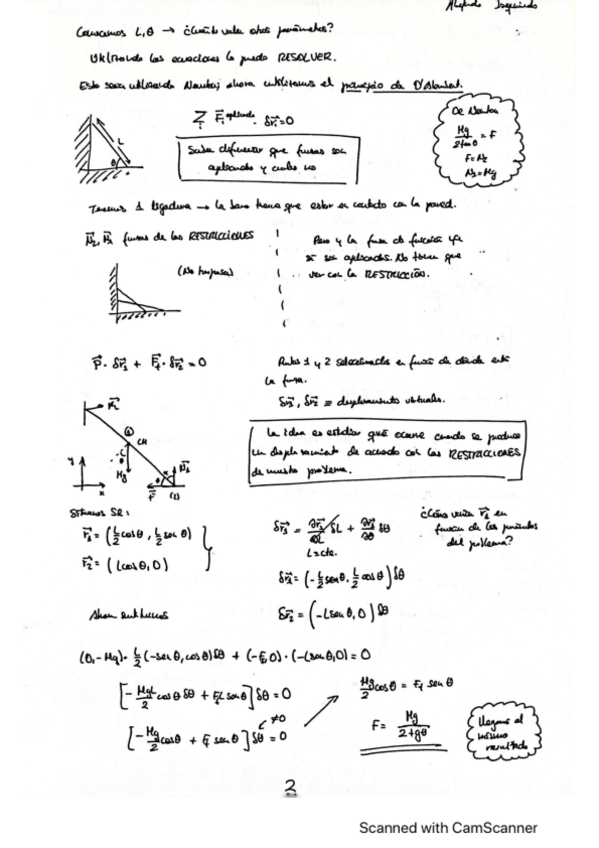 Alfredo Izquierdo
Conocemos L, θ → ¿Cuánto valen otros parámetros?
Utilizando las ecuaciones lo puedo RESOLVER.
Esto sería utilizando Newton; ahora utilizamos el principio de D'Alembert.
L
θ
Σ F⃗ᵢ aplicada · δr⃗ᵢ = 0
i
Saber diferenciar que fuerzas son
aplicadas y cuales no
De Newton
Mg/2tanθ = F
F = N₂
N₁ = Mg
Tenemos 1 ligadura → la barra tiene que estar en contacto con la pared.
N⃗₂, N⃗₁ fuerzas de las RESTRICCIONES
(No trabajan)
Pero y la fuerza de fricción ya
si son aplicadas. No tienen que
ver con la RESTRICCIÓN.
P⃗ · δr⃗₁ + F⃗f · δr⃗₂ = 0
Puntos 1 y 2 seleccionados en función de dónde está
la fuerza.
δr⃗₁, δr⃗₂ ≡ desplazamientos virtuales.
La idea es estudiar qué ocurre cuando se produce
un desplazamiento de acuerdo con las RESTRICCIONES
de nuestro problema.
N⃗₂
(1)
CM
Mg
N⃗₁
F
(2)
y
x
Situamos SR:
r⃗₁ = (L/2 cosθ, L/2 senθ)
r⃗₂ = (Lcosθ, 0)
δr⃗₁ = ∂r⃗₁/∂L δL + ∂r⃗₁/∂θ δθ
L=cte.
¿Cómo varía r⃗₁ en
función de los parámetros
del problema?
δr⃗₁ = (-L/2 senθ, L/2 cosθ) δθ
Ahora sustituimos
δr⃗₂ = (-Lsenθ, 0) δθ
(0, -Mg) · L/2 (-senθ, cosθ) δθ + (-Ff, 0) · (-Lsenθ, 0) = 0
[-MgL/2 cosθ δθ + FfL senθ] δθ = 0
≠0
[-Mg/2 cosθ + Ff senθ] δθ = 0
Mg/2 cosθ = Ff senθ
F = Mg/2tgθ
Llegamos al
mismo
resultado
2
Scanned with CamScanner